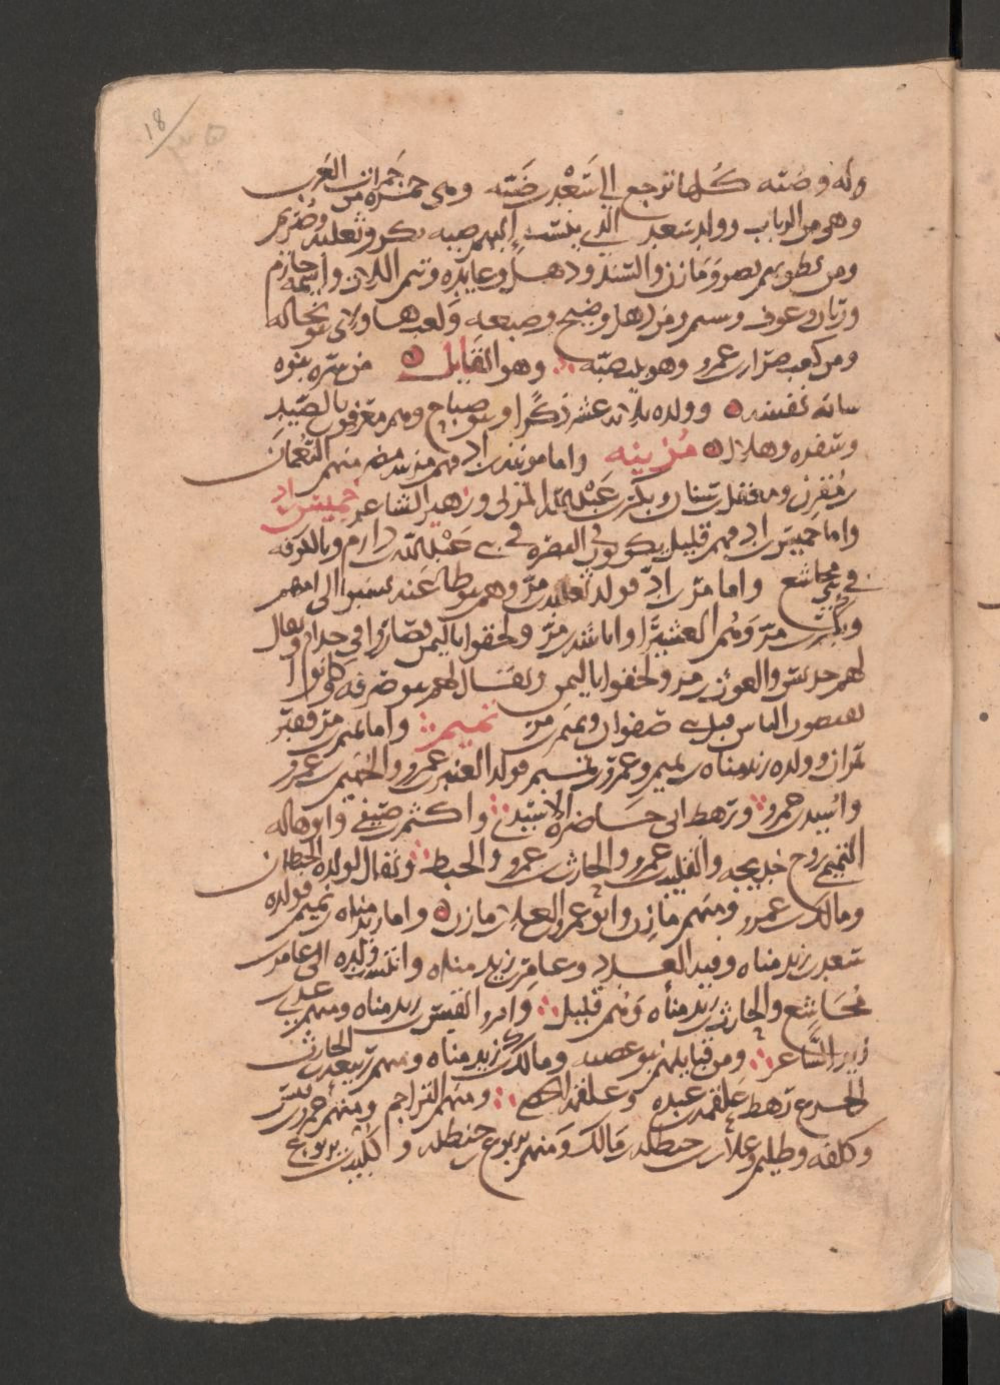 18
وله وضبه كلها ترجع الى سَعْد بن ضَبّه وهى جمره من جَمرات العَرب
وهى من الرباب وولد سَعد الذى ينسب اليهم ضبه بكر وثعلبه وصَريم
ومن بطونهم نصر ومَازن والسّيد وذهل وعايذه وتيم اللات وحازم
وزبان وعوف ومن ذهل وضبيح بجاله
ومن كعب ضرار بن عمرو وهو سيد ضبّه ∴ وهو القايل من سرّه بنوه
ساته نفسه وولده ثلاثه عشر ذكرًا وبنو صباح وهم معرفون بالصّيد
وشقره وهلال مُزينه واما مزينه بن اد فهم مزينه مضر منهم النُّعمان
بن مُقرن ومعقل بن سنان وبكر بن عَبْد الله المزنى وزهير الشاعر حميس بن اد
واما حميس بن اد فهم قليل يكونون فى البصره فى بنى عَبْد الله بن دارم وبالكوفه
فى بنى مجاشع واما مرّ بن ادّ فولد ثعلبه بن مرّ وهم بنو طاعنه نسبوا الى امهم
وبكر بن مرّ وهُم الشعيرا واراشه بن مرّ ولحقوا باليمن فصَاروا فى جذام ويقال
لهم حديس والغوث بن مر ولحقوا باليمن ويقال لهم بنو صوفه كانوا
الناس قبل بنى صَفوان وتميم بن مرّ تميم ∴ واما تميم بن مرّ فقبر
بمران وولده زيد مناه بن تميم وعمرو بن تميم فولد العنبر بن عمرو والهجيم بن عمرو
واسَيد بن عمرو ∴ ورهط ابى حَاضره الاسَيدى ∴ واكثم بن صَيفى وابو هاله
التميمى زوج خديجه والقليب بن عمرو والحارث بن عمرو والحبط ∴ ويقال لولده الحبطات
ومالك بن عمرو ومنهم مَازن وابو عمرو بن العلا بن مازن واما زيد مناه بن تميم فولده
سَعد بن زيد مناه وفيه العَدد وعامر بن زيد مناه وانتسب ولده الى عامر بن
مُجَاشع والحارث بن زيد مناه وهُم قليل ∴ وامرو القيس بن زيد مناه ومنهم عَدى بن
زيد الشاعر ∴ ومن قبايلهم بنو عصيه ومالك بن زيد مناه ومنهم ربيعه بن الحارث
الجوع رهط علقمه بن عبده وعلقمه الخصى ∴ ومنهم البراجم ومنهم عمرو وقيس
وكلفه وظليم وغالب بن حنظله بن مَالك ومنهم يربوع بن حنظله وكليب بن يربوع